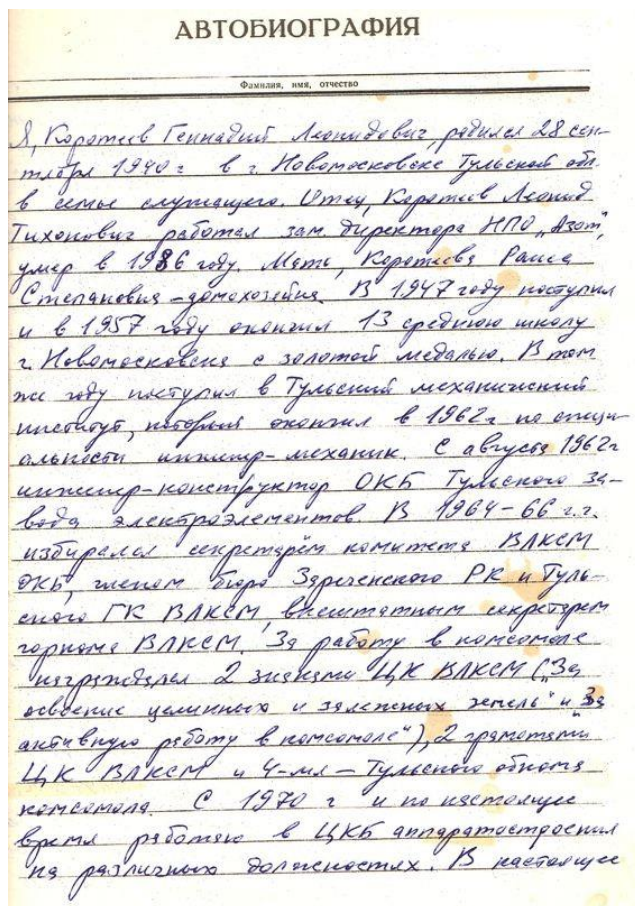 АВТОБИОГРАФИЯ
Фамилия, имя, отчество
Я, Коротеев Геннадий Леонидович, родился 28 сен-
тября 1940 г в г. Новомосковске Тульской обл.
в семье служащего. Отец, Коротеев Леонид
Тихонович работал зам. директора НПО „Азот",
умер в 1986 году. Мать, Коротеева Раиса
Степановна – домохозяйка. В 1947 году поступил
и в 1957 году окончил 13 среднюю школу
г. Новомосковска с золотой медалью. В том
же году поступил в Тульский механический
институт, который окончил в 1962 г по специ-
альности инженер-механик. С августа 1962 г
инженер-конструктор ОКБ Тульского за-
вода электроэлементов. В 1964–66 г.г.
избирался секретарём комитета ВЛКСМ
ОКБ, членом бюро Зареченского РК и Туль-
ского ГК ВЛКСМ, внештатным секретарем
горкома ВЛКСМ. За работу в комсомоле
награждался 2 знаками ЦК ВЛКСМ („За
освоение целинных и залежных земель" и „За
активную работу в комсомоле"), 2 грамотами
ЦК ВЛКСМ и 4-мя – Тульского обкома
комсомола. С 1970 г и по настоящее
время работаю в ЦКБ аппаратостроения
на различных должностях. В настоящее